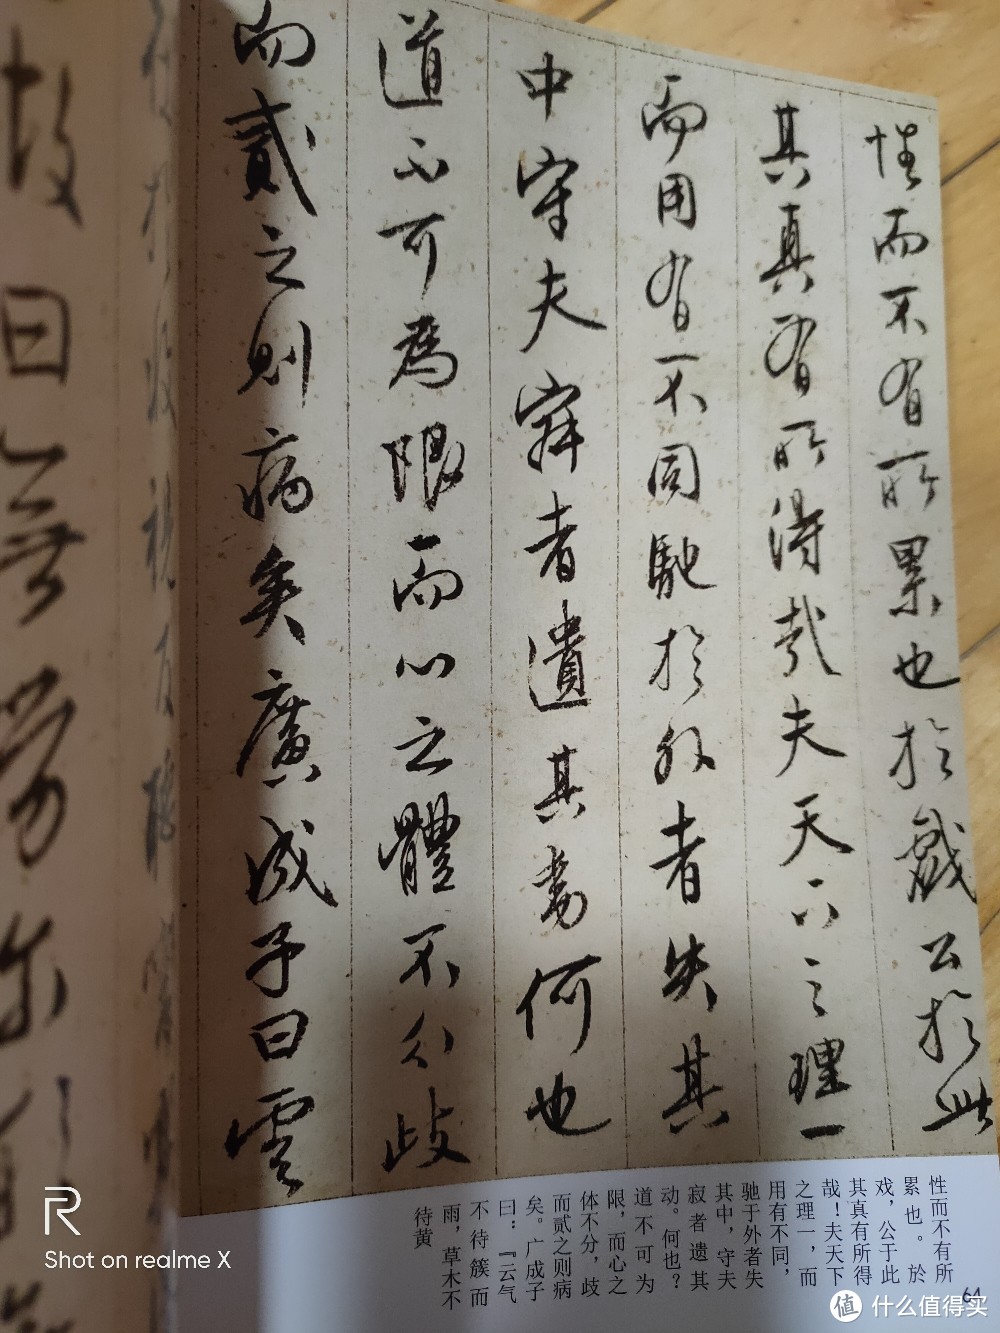 性而不有所累也於戲公於此
其真有所得哉夫天下之理一
而用有不同馳於外者失其
中守夫寂者遺其動何也
道不可為限而心之體不分歧
而貳之則病矣廣成子曰雲
性而不有所
累也。於
戏，公于此
其真有所得
哉！夫天下
之理一，而
用有不同，
驰于外者失
其中，守夫
寂者遗其
动。何也？
道不可为
限，而心之
体不分，歧
而贰之则病
矣。广成子
曰：『云气
不待簇而
雨，草木不
待黄
64
故曰無勞尔
R
Shot on realme X
值 什么值得买